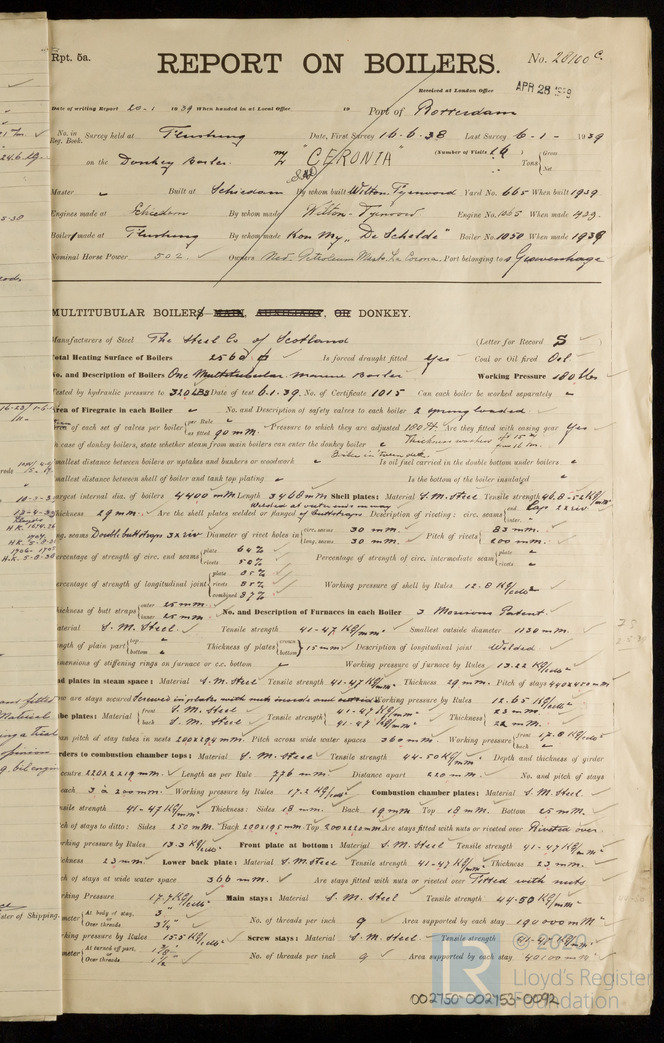 Rpt. 5a.
REPORT ON BOILERS.
No. 28100 C.
Received at London Office
APR 28 1939
Date of writing Report 20-1 1939 When handed in at Local Office 19 Port of Rotterdam
No. in Reg. Book. Survey held at Flushing Date, First Survey 16-6-38 Last Survey 6-1-1939
on the Donkey Boiler "CERONIA" (Number of Visits 16) Tons Gross Net
Master Built at Schiedam By whom built Wilton-Fijenoord Yard No. 665 When built 1939
Engines made at Schiedam By whom made Wilton-Fijenoord Engine No. When made 1939
Boiler made at Flushing By whom made Kon My "De Schelde" Boiler No. 1050 When made 1939
Nominal Horse Power 502 Owners Ned. Petroleum Maats. La Corona Port belonging to s Gravenhage
MULTITUBULAR BOILERS MAIN, AUXILIARY, OR DONKEY.
Manufacturers of Steel The Steel Co of Scotland (Letter for Record S)
Total Heating Surface of Boilers 2560 Is forced draught fitted Yes Coal or Oil fired Oil
No. and Description of Boilers One Multitubular marine Boiler Working Pressure 180 lbs
Tested by hydraulic pressure to 320 LBS Date of test 6.1.39 No. of Certificate 1015 Can each boiler be worked separately
Area of Firegrate in each Boiler No. and Description of safety valves to each boiler 2 spring loaded
Area of each set of valves per boiler per Rule as fitted 90 mm. Pressure to which they are adjusted Are they fitted with easing gear Yes
In case of donkey boilers, state whether steam from main boilers can enter the donkey boiler
Smallest distance between boilers or uptakes and bunkers or woodwork Boiler in tween deck Is oil fuel carried in the double bottom under boilers
Smallest distance between shell of boiler and tank top plating Is the bottom of the boiler insulated
Largest internal dia. of boilers 4400 mm Length 3460 mm Shell plates: Material S.M. Steel Tensile strength
Thickness 29 mm Are the shell plates welded or flanged Description of riveting: circ. seams end Lap 2x riv. inter.
long. seams Double buttstraps 3x riv Diameter of rivet holes in circ. seams 30 mm. long. seams 30 mm. Pitch of rivets 83 mm. 200 mm.
Percentage of strength of circ. end seams plate 64% rivets 50% Percentage of strength of circ. intermediate seam plate rivets
Percentage of strength of longitudinal joint plate 85% rivets 85% combined 87% Working pressure of shell by Rules 12.8 KG/
Thickness of butt straps outer 25 mm. inner 25 mm. No. and Description of Furnaces in each Boiler 3 Morrisons Patent
Material S.M. Steel. Tensile strength 41-47 KG/mm² Smallest outside diameter 1130 mm.
Length of plain part top bottom Thickness of plates crown bottom 15 mm Description of longitudinal joint Welded
Dimensions of stiffening rings on furnace or c.c. bottom Working pressure of furnace by Rules 13.22 KG/
End plates in steam space: Material S.M. Steel Tensile strength 41-47 KG/mm² Thickness 29 mm Pitch of stays 440x450 mm
How are stays secured Screwed in plates with nuts inside and outside Working pressure by Rules 12.65 KG/
Tube plates: Material front S.M. Steel back S.M. Steel Tensile strength 41-47 KG/mm² 41-47 KG/mm² Thickness 23 mm 22 mm
Mean pitch of stay tubes in nests 200x294 mm. Pitch across wide water spaces 360 mm Working pressure front 17.8 KG/ back
Girders to combustion chamber tops: Material S.M. Steel Tensile strength 44-50 KG/mm² Depth and thickness of girder
at centre 220x2x19 mm. Length as per Rule 776 mm. Distance apart 220 mm. No. and pitch of stays
in each 3 à 200 mm. Working pressure by Rules 17.2 KG/ Combustion chamber plates: Material S.M. Steel.
Tensile strength 41-47 KG/mm² Thickness: Sides 18 mm. Back 19 mm Top 18 mm. Bottom 25 mm.
Pitch of stays to ditto: Sides 250 mm. Back 200x195 mm Top 200x220 mm Are stays fitted with nuts or riveted over Riveted over.
Working pressure by Rules 13.3 KG/ Front plate at bottom: Material S.M. Steel Tensile strength 41-47 KG/mm²
Thickness 23 mm Lower back plate: Material S.M. Steel Tensile strength 41-47 KG/mm² Thickness 23 mm.
Pitch of stays at wide water space 366 mm. Are stays fitted with nuts or riveted over Fitted with nuts
Working Pressure 17.7 KG/ Main stays: Material S.M. Steel Tensile strength 44-50 KG/mm²
Diameter At body of stay, or Over threads 3" 3¼" No. of threads per inch 9 Area supported by each stay 190000 mm²
Working pressure by Rules 15.5 KG/ Screw stays: Material S.M. Steel Tensile strength 41-47 KG/mm²
Diameter At turned off part, or Over threads No. of threads per inch 9 Area supported by each stay 40100 mm²
© 2020
LR
Lloyd's Register
Foundation
002750-002753-0092